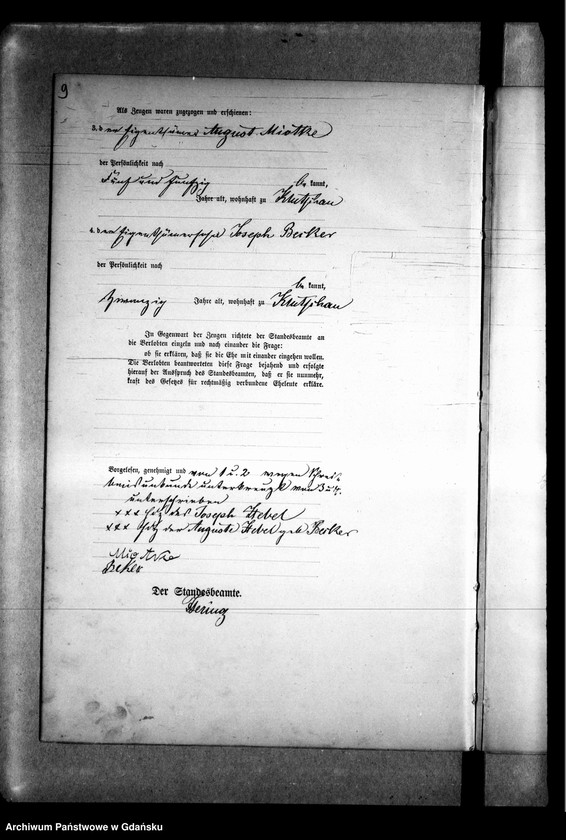 9
Als Zeugen waren zugezogen und erschienen:
3. der Eigenthümer August Miotke
der Persönlichkeit nach
be kannt,
fünf und fünfzig
Jahre alt, wohnhaft zu Klutschau
4. der Eigenthümersohn Joseph Becker
der Persönlichkeit nach
be kannt,
zwanzig Jahre alt, wohnhaft zu Klutschau
In Gegenwart der Zeugen richtete der Standesbeamte an
die Verlobten einzeln und nach einander die Frage:
ob sie erklären, daß sie die Ehe mit einander eingehen wollen.
Die Verlobten beantworteten diese Frage bejahend und erfolgte
hierauf der Ausspruch des Standesbeamten, daß er sie nunmehr,
kraft des Gesetzes für rechtmäßig verbundene Eheleute erkläre.
Vorgelesen, genehmigt und von 1 u. 2 wegen Schrei-
bensunkunde unterkreuzt von 3 u 4.
unterschrieben
+++ Hdz des Joseph Hebel
+++ Hdz der Auguste Hebel geb Becker
Miotke
Der Standesbeamte.
Archiwum Państwowe w Gdańsku